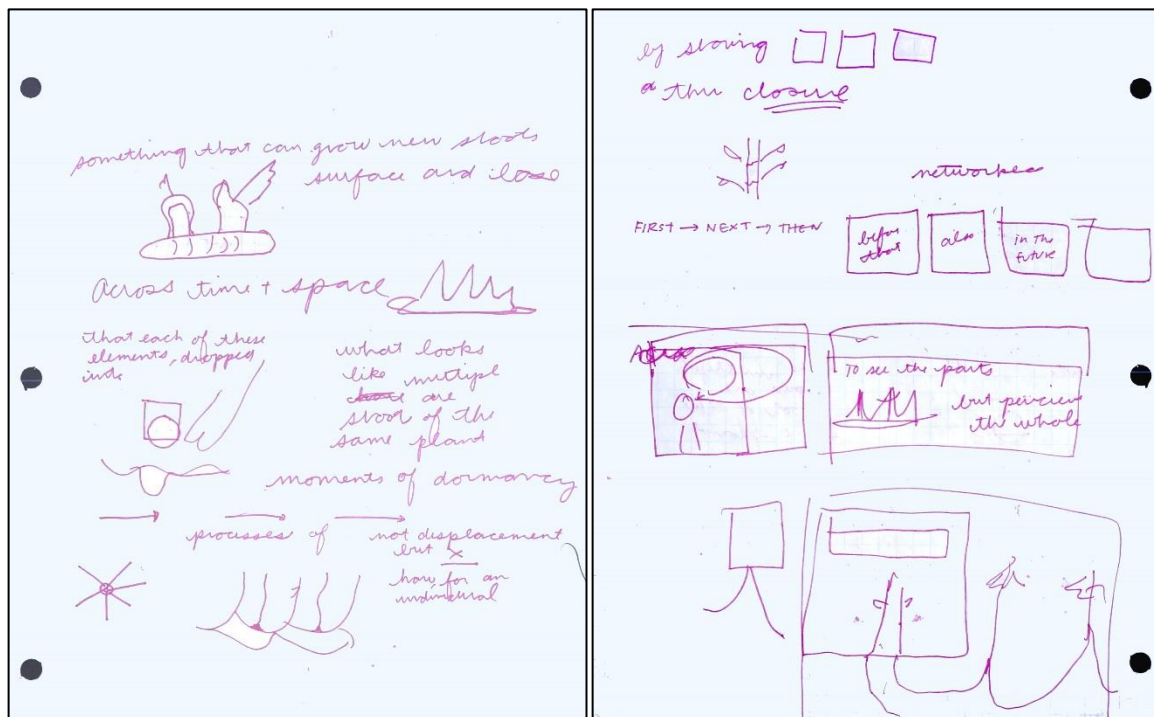 something that can grow new shoots
surface and
Across time + space
that each of these
elements, dropped
into
what looks
like multipl
are
shoot of the
same plant
moments of dormancy
processes of
not displacement
but x
how for an
by showing
thru closure
networked
FIRST → NEXT → THEN
before
that
also
in the
future
To see the parts
but perceive
the whole